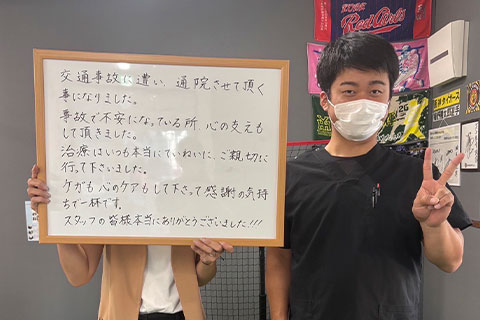 交通事故に遭い、通院させて頂く
事になりました。
事故で不安になっている所、心の支えも
して頂きました。
治療はいつも本当にていねいに、ご親切に
行って下さいました。
ケガも心のケアもして下さって感謝の気持
ちで一杯です。
スタッフの皆様本当にありがとうございました!!!
Red Girls